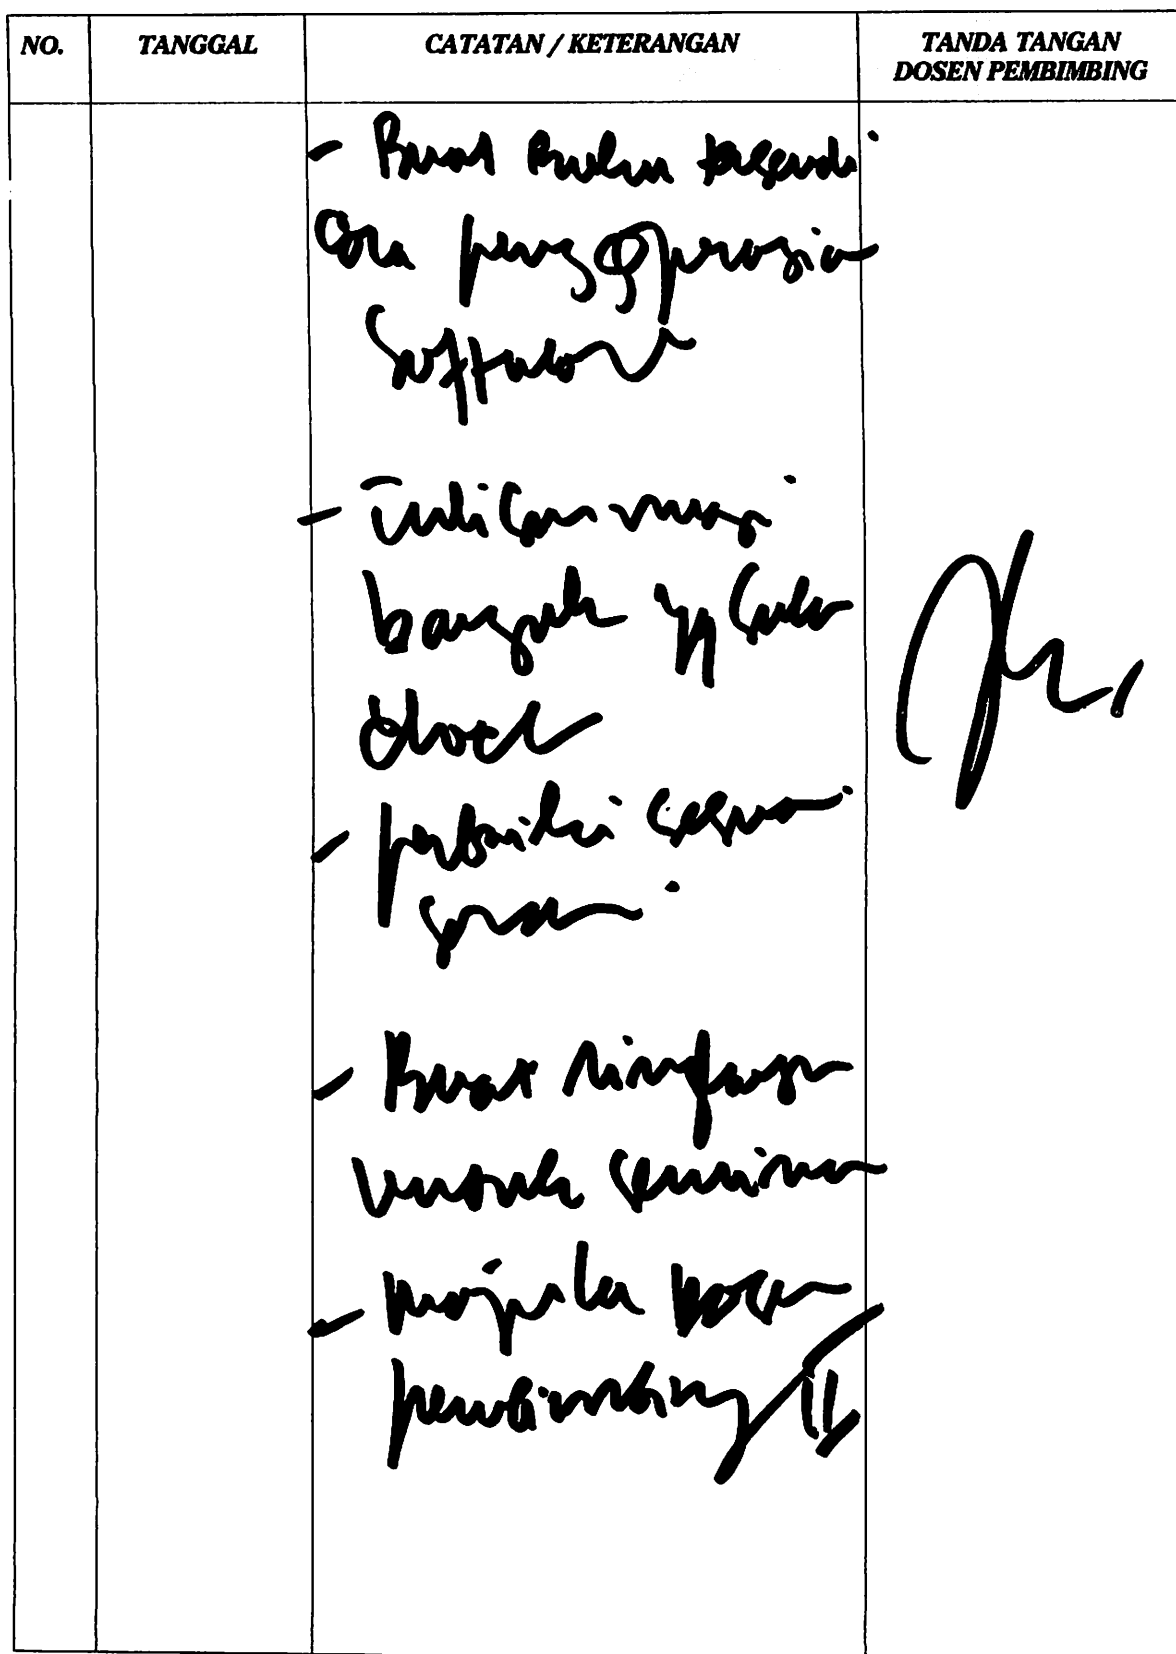 NO.
TANGGAL
CATATAN / KETERANGAN
TANDA TANGAN
DOSEN PEMBIMBING
- Buat Buku tersendi
Cara pengoperasia
Software
- Tulisan masi
banyak yg salah
- perbaiki sesuai
saran
- Buat ringkasan
untuk seminar
- maju ke dosen
pembimbing II